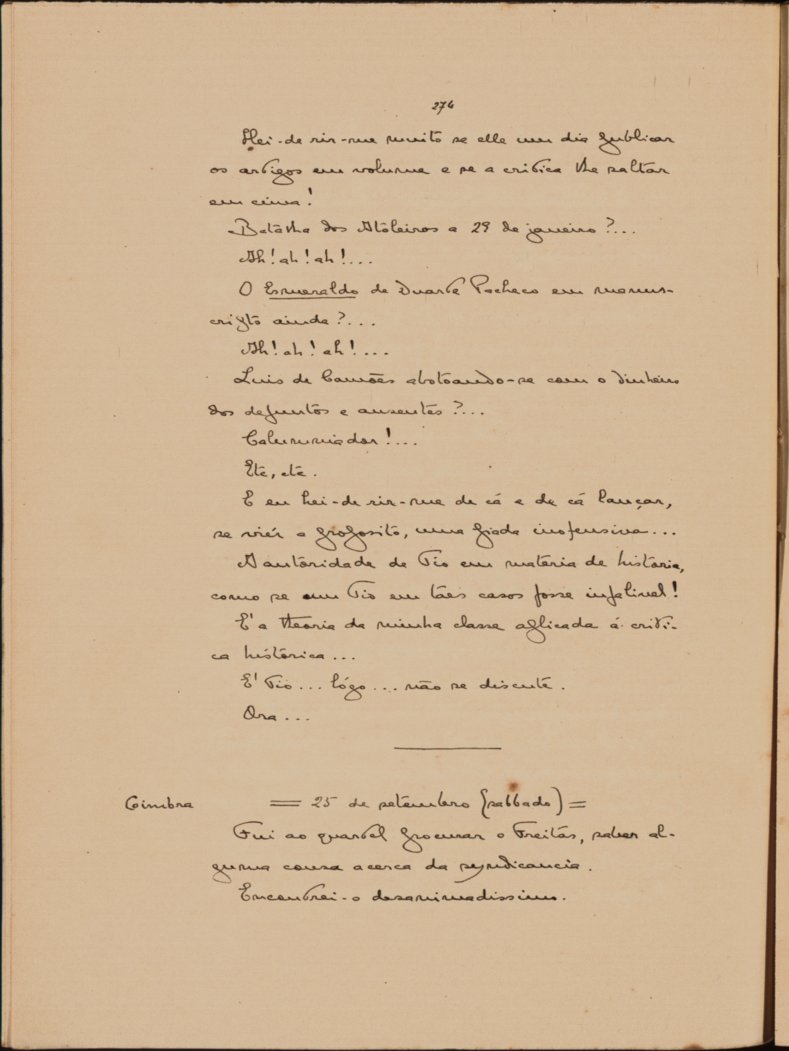 274
Hei-de rir-me muito se elle um dia publicar
os artigos em volume e se a critica lhe saltar
em cima!
Batalha dos Atoleiros a 29 de janeiro?...
Ah! ah! ah!...
O Esmeraldo de Duarte Pacheco em manus-
cripto ainda?...
Ah! ah! ah!...
Luis de Camões abotoando-se com o dinheiro
dos defuntos e ausentes?...
Calumniador!...
Etc, etc.
E eu hei-de rir-me de cá e de cá lançar,
se viér a proposito, uma piada inofensiva...
A autoridade de Tio em materia de historia,
como se um Tio em táes casos fosse infalivel!
E' a theoria da minha classe aplicada á criti-
ca histórica...
E' Tio... lógo... não se discute.
Ora...
Coimbra = 25 de setembro (sabbado) =
Fui ao quartel procurar o Freitas, saber al-
guma cousa acerca da syndicancia.
Encontrei-o desanimadissimo.